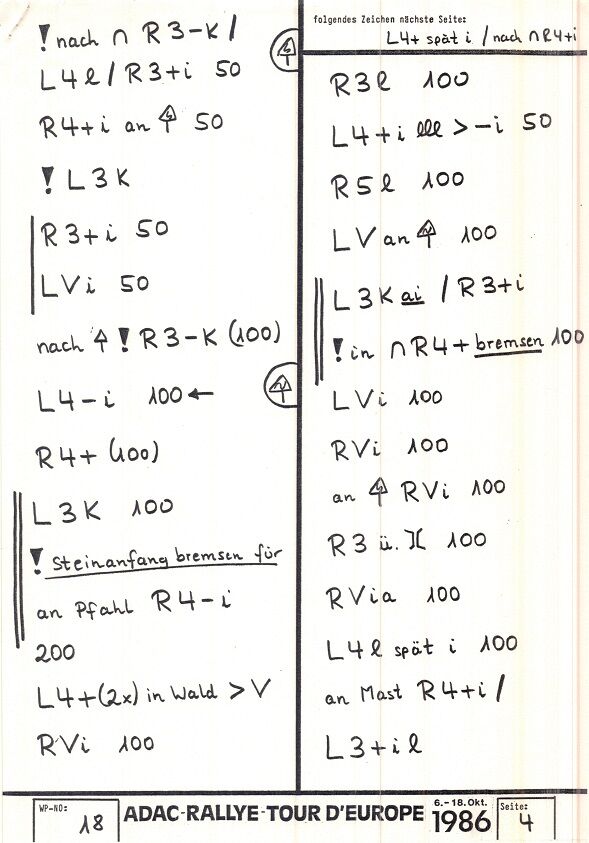 ! nach ∩ R3-K /
L4l / R3+i 50
R4+i an 50
! L3K
R3+i 50
LVi 50
nach ! R3-K (100)
L4-i 100 ←
R4+ (100)
L3K 100
! Steinanfang bremsen für
an Pfahl R4-i
200
L4+(2x) in Wald > V
RVi 100
folgendes Zeichen nächste Seite:
L4+ spät i / nach ∩ R4+i
R3l 100
L4+i lll > -i 50
R5l 100
LV an 100
L3K ai / R3+i
! in ∩ R4+ bremsen 100
LVi 100
RVi 100
an RVi 100
R3 ü. )( 100
RVia 100
L4l spät i 100
an Mast R4+i /
L3+il
WP-NO: 18
ADAC-RALLYE-TOUR D'EUROPE
6.-18. Okt.
1986
Seite: 4